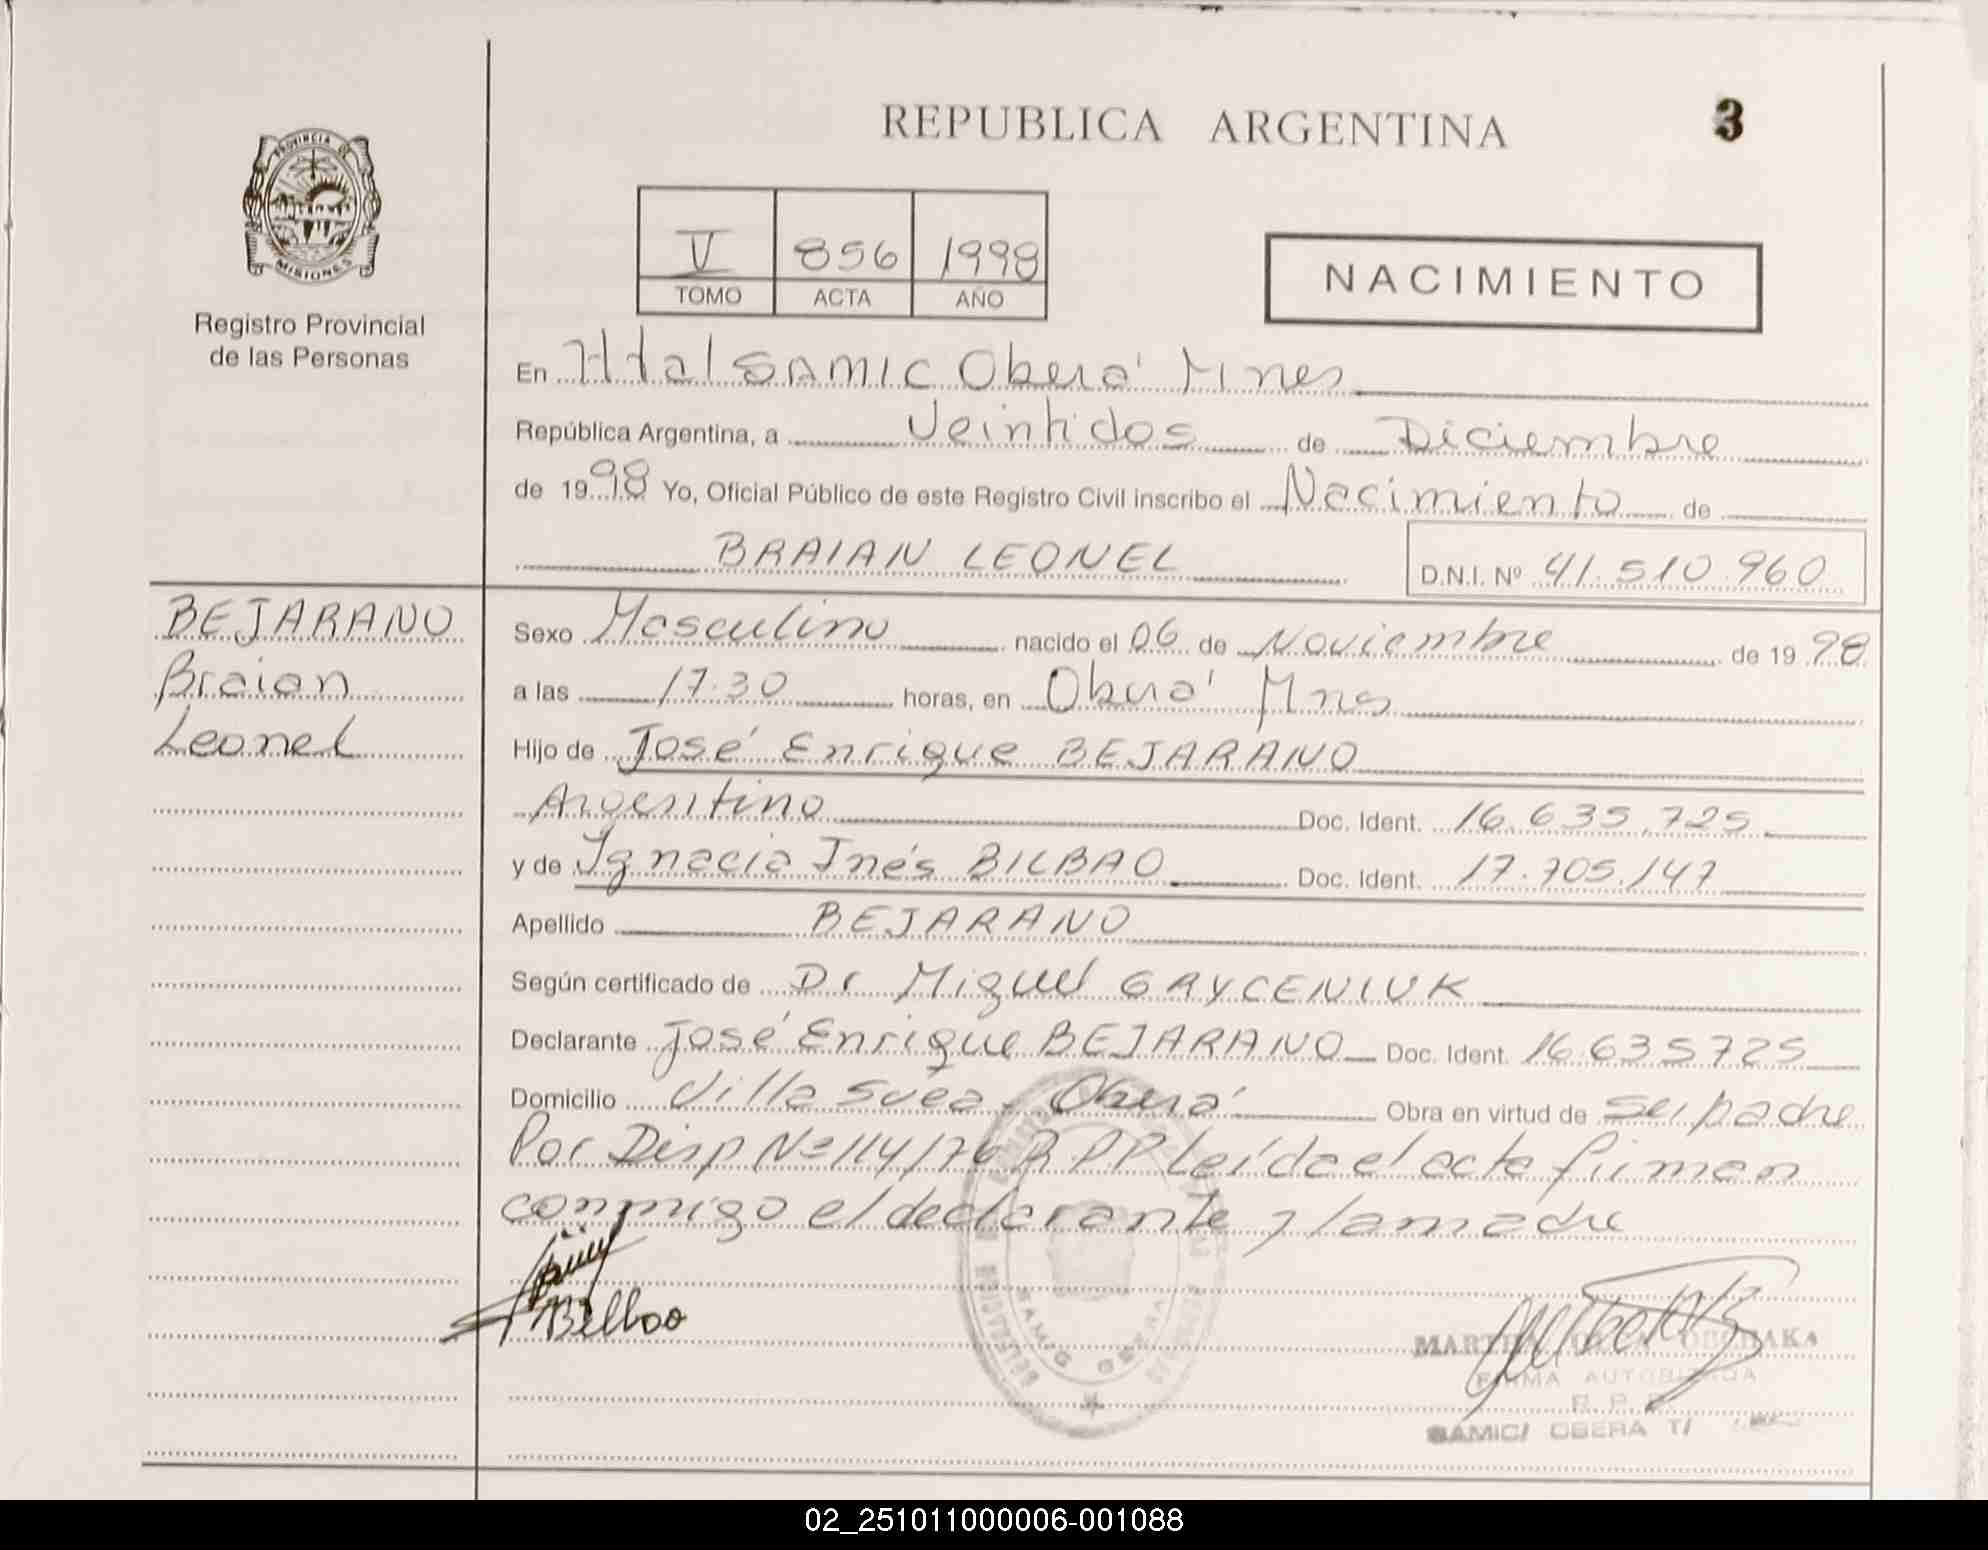 REPUBLICA ARGENTINA
3
PROVINCIA DE
MISIONES
Registro Provincial
de las Personas
V 856 1998
TOMO ACTA AÑO
NACIMIENTO
En Htal SAMIC Oberá Mnes
República Argentina, a Veintidos de Diciembre
de 1998 Yo, Oficial Público de este Registro Civil inscribo el Nacimiento de
BRAIAN LEONEL D.N.I. Nº 41.510.960
BEJARANO
Braian
Leonel
Sexo Masculino nacido el 06 de Noviembre de 1998
a las 17.30 horas, en Oberá Mns
Hijo de José Enrique BEJARANO
Argentino Doc. Ident. 16.635.725
y de Ignacia Inés BILBAO Doc. Ident. 17.705.147
Apellido BEJARANO
Según certificado de Dr Miguel GRYCENIUK
Declarante José Enrique BEJARANO Doc. Ident. 16635725
Domicilio Villa Svea - Oberá Obra en virtud de ser padre
Por Disp Nº 114/76 R.P.P Leída el acta firman
conmigo el declarante y la madre
Bilbao
SAMIC OBERA
MARTHA
FIRMA AUTORIZADA
R. P. P.
SAMIC/ OBERA T/
02_251011000006-001088